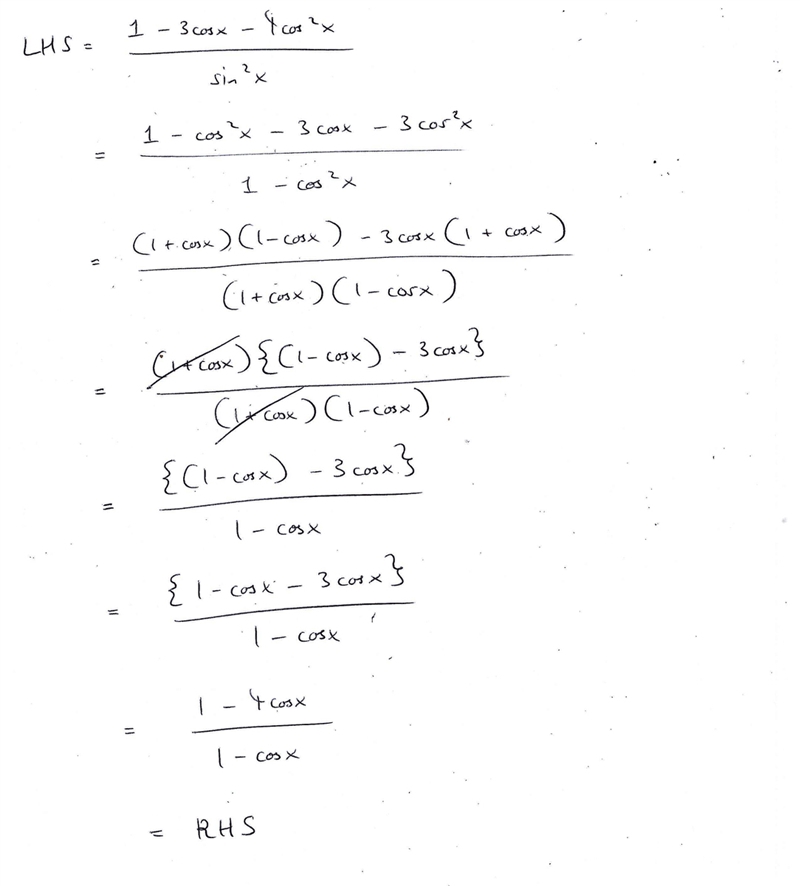 LHS = (1 - 3cosx - 4cos²x) / (sin²x)
= (1 - cos²x - 3cosx - 3cos²x) / (1 - cos²x)
= ((1 + cosx)(1 - cosx) - 3cosx(1 + cosx)) / ((1 + cosx)(1 - cosx))
= ((1 + cosx){(1 - cosx) - 3cosx}) / ((1 + cosx)(1 - cosx))
= {(1 - cosx) - 3cosx} / (1 - cosx)
= {1 - cosx - 3cosx} / (1 - cosx)
= (1 - 4cosx) / (1 - cosx)
= RHS